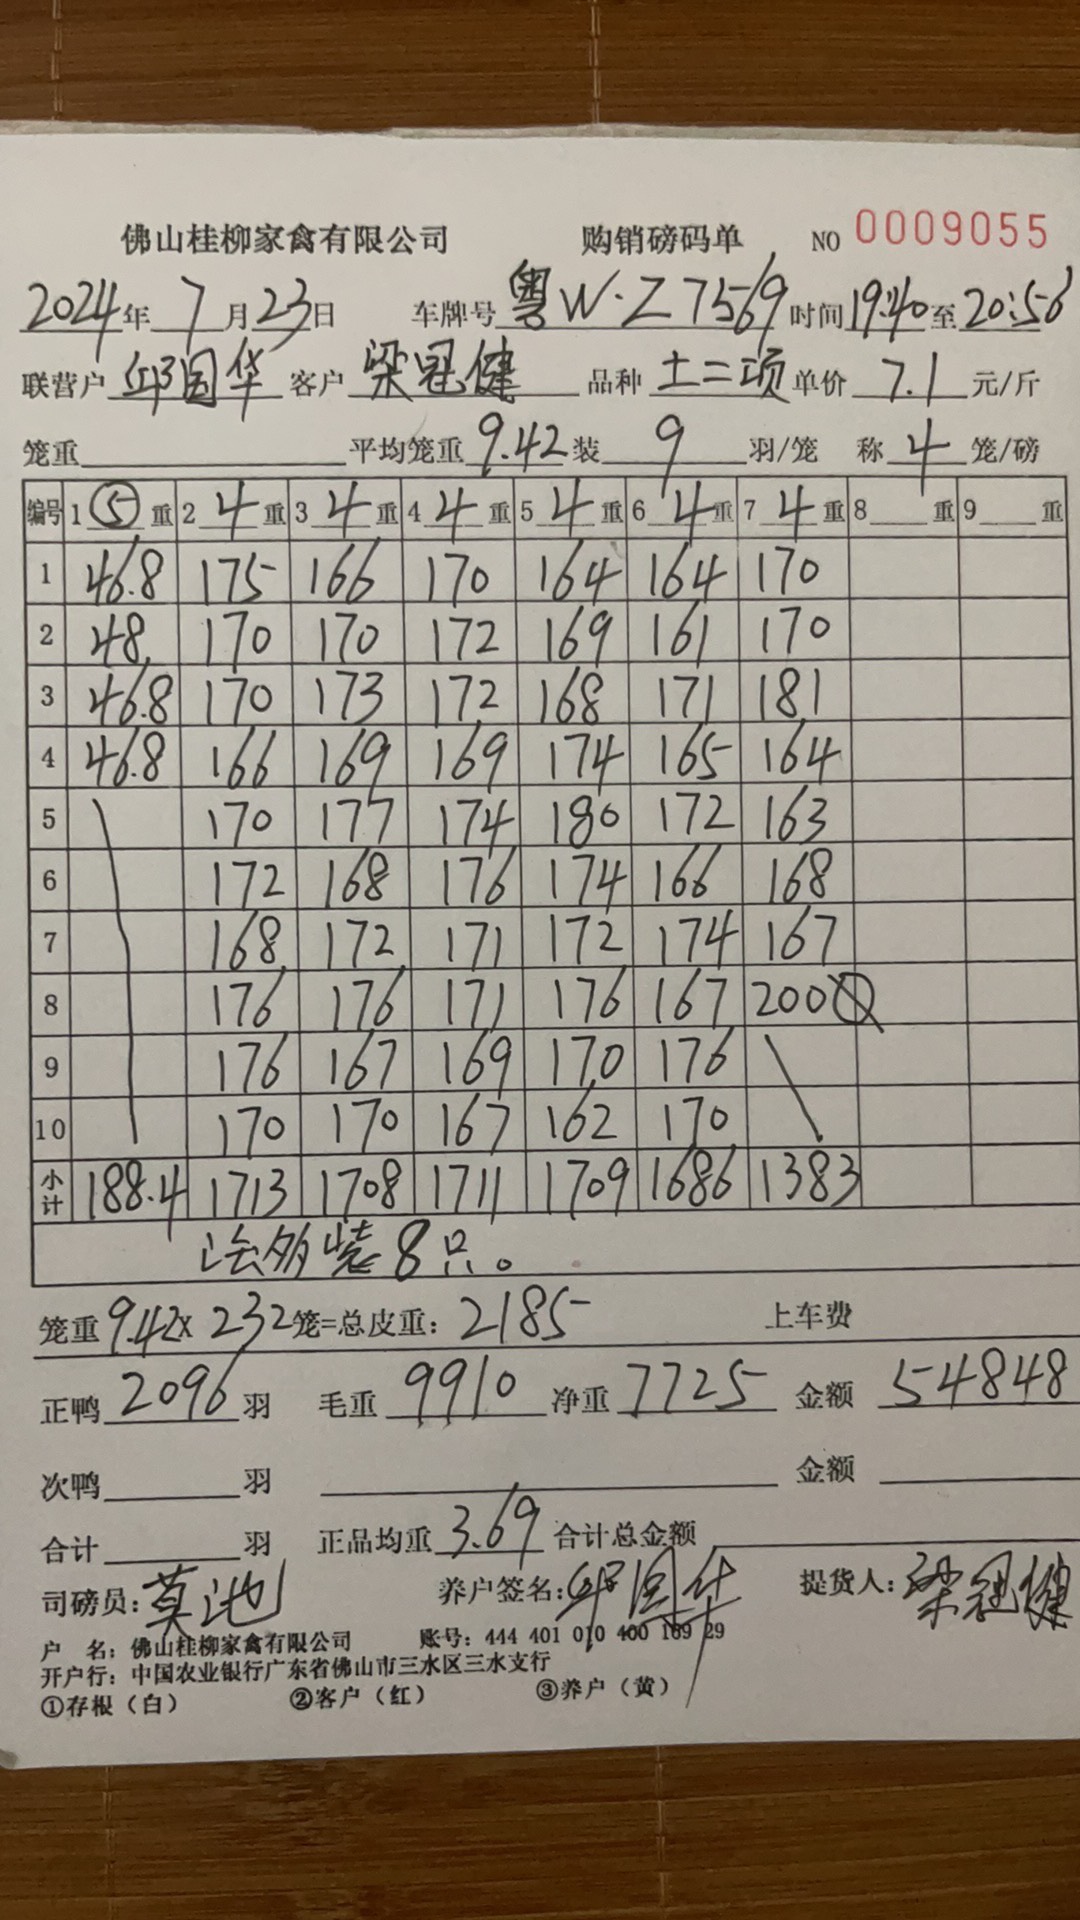 佛山桂柳家禽有限公司 购销磅码单 NO 0009055
2024年 7月23日 车牌号 粤W·Z7569 时间 19:40 至 20:56
联营户 邱国华 客户 梁冠健 品种 土二项 单价 7.1 元/斤
笼重 平均笼重 9.42 装 9 羽/笼 称 4 笼/磅
编号 1 ⑤ 重 2 4 重 3 4 重 4 4 重 5 4 重 6 4 重 7 4 重 8 重 9 重
1 46.8 175 166 170 164 164 170
2 48 170 170 172 169 161 170
3 46.8 170 173 172 168 171 181
4 46.8 166 169 169 174 165 164
5 170 177 174 180 172 163
6 172 168 176 174 166 168
7 168 172 171 172 174 167
8 176 176 171 176 167 200
9 176 167 169 170 176
10 170 170 167 162 170
小计 188.4 1713 1708 1711 1709 1686 1383
装8只。
笼重 9.42 X 232 笼=总皮重: 2185 上车费
正鸭 2096 羽 毛重 9910 净重 7725 金额 54848
次鸭 羽 金额
合计 羽 正品均重 3.69 合计总金额
司磅员: 莫池 养户签名: 邱国华 提货人: 梁冠健
户 名: 佛山桂柳家禽有限公司 账号: 444 401 010 400 169 29
开户行: 中国农业银行广东省佛山市三水区三水支行
①存根（白） ②客户（红） ③养户（黄）